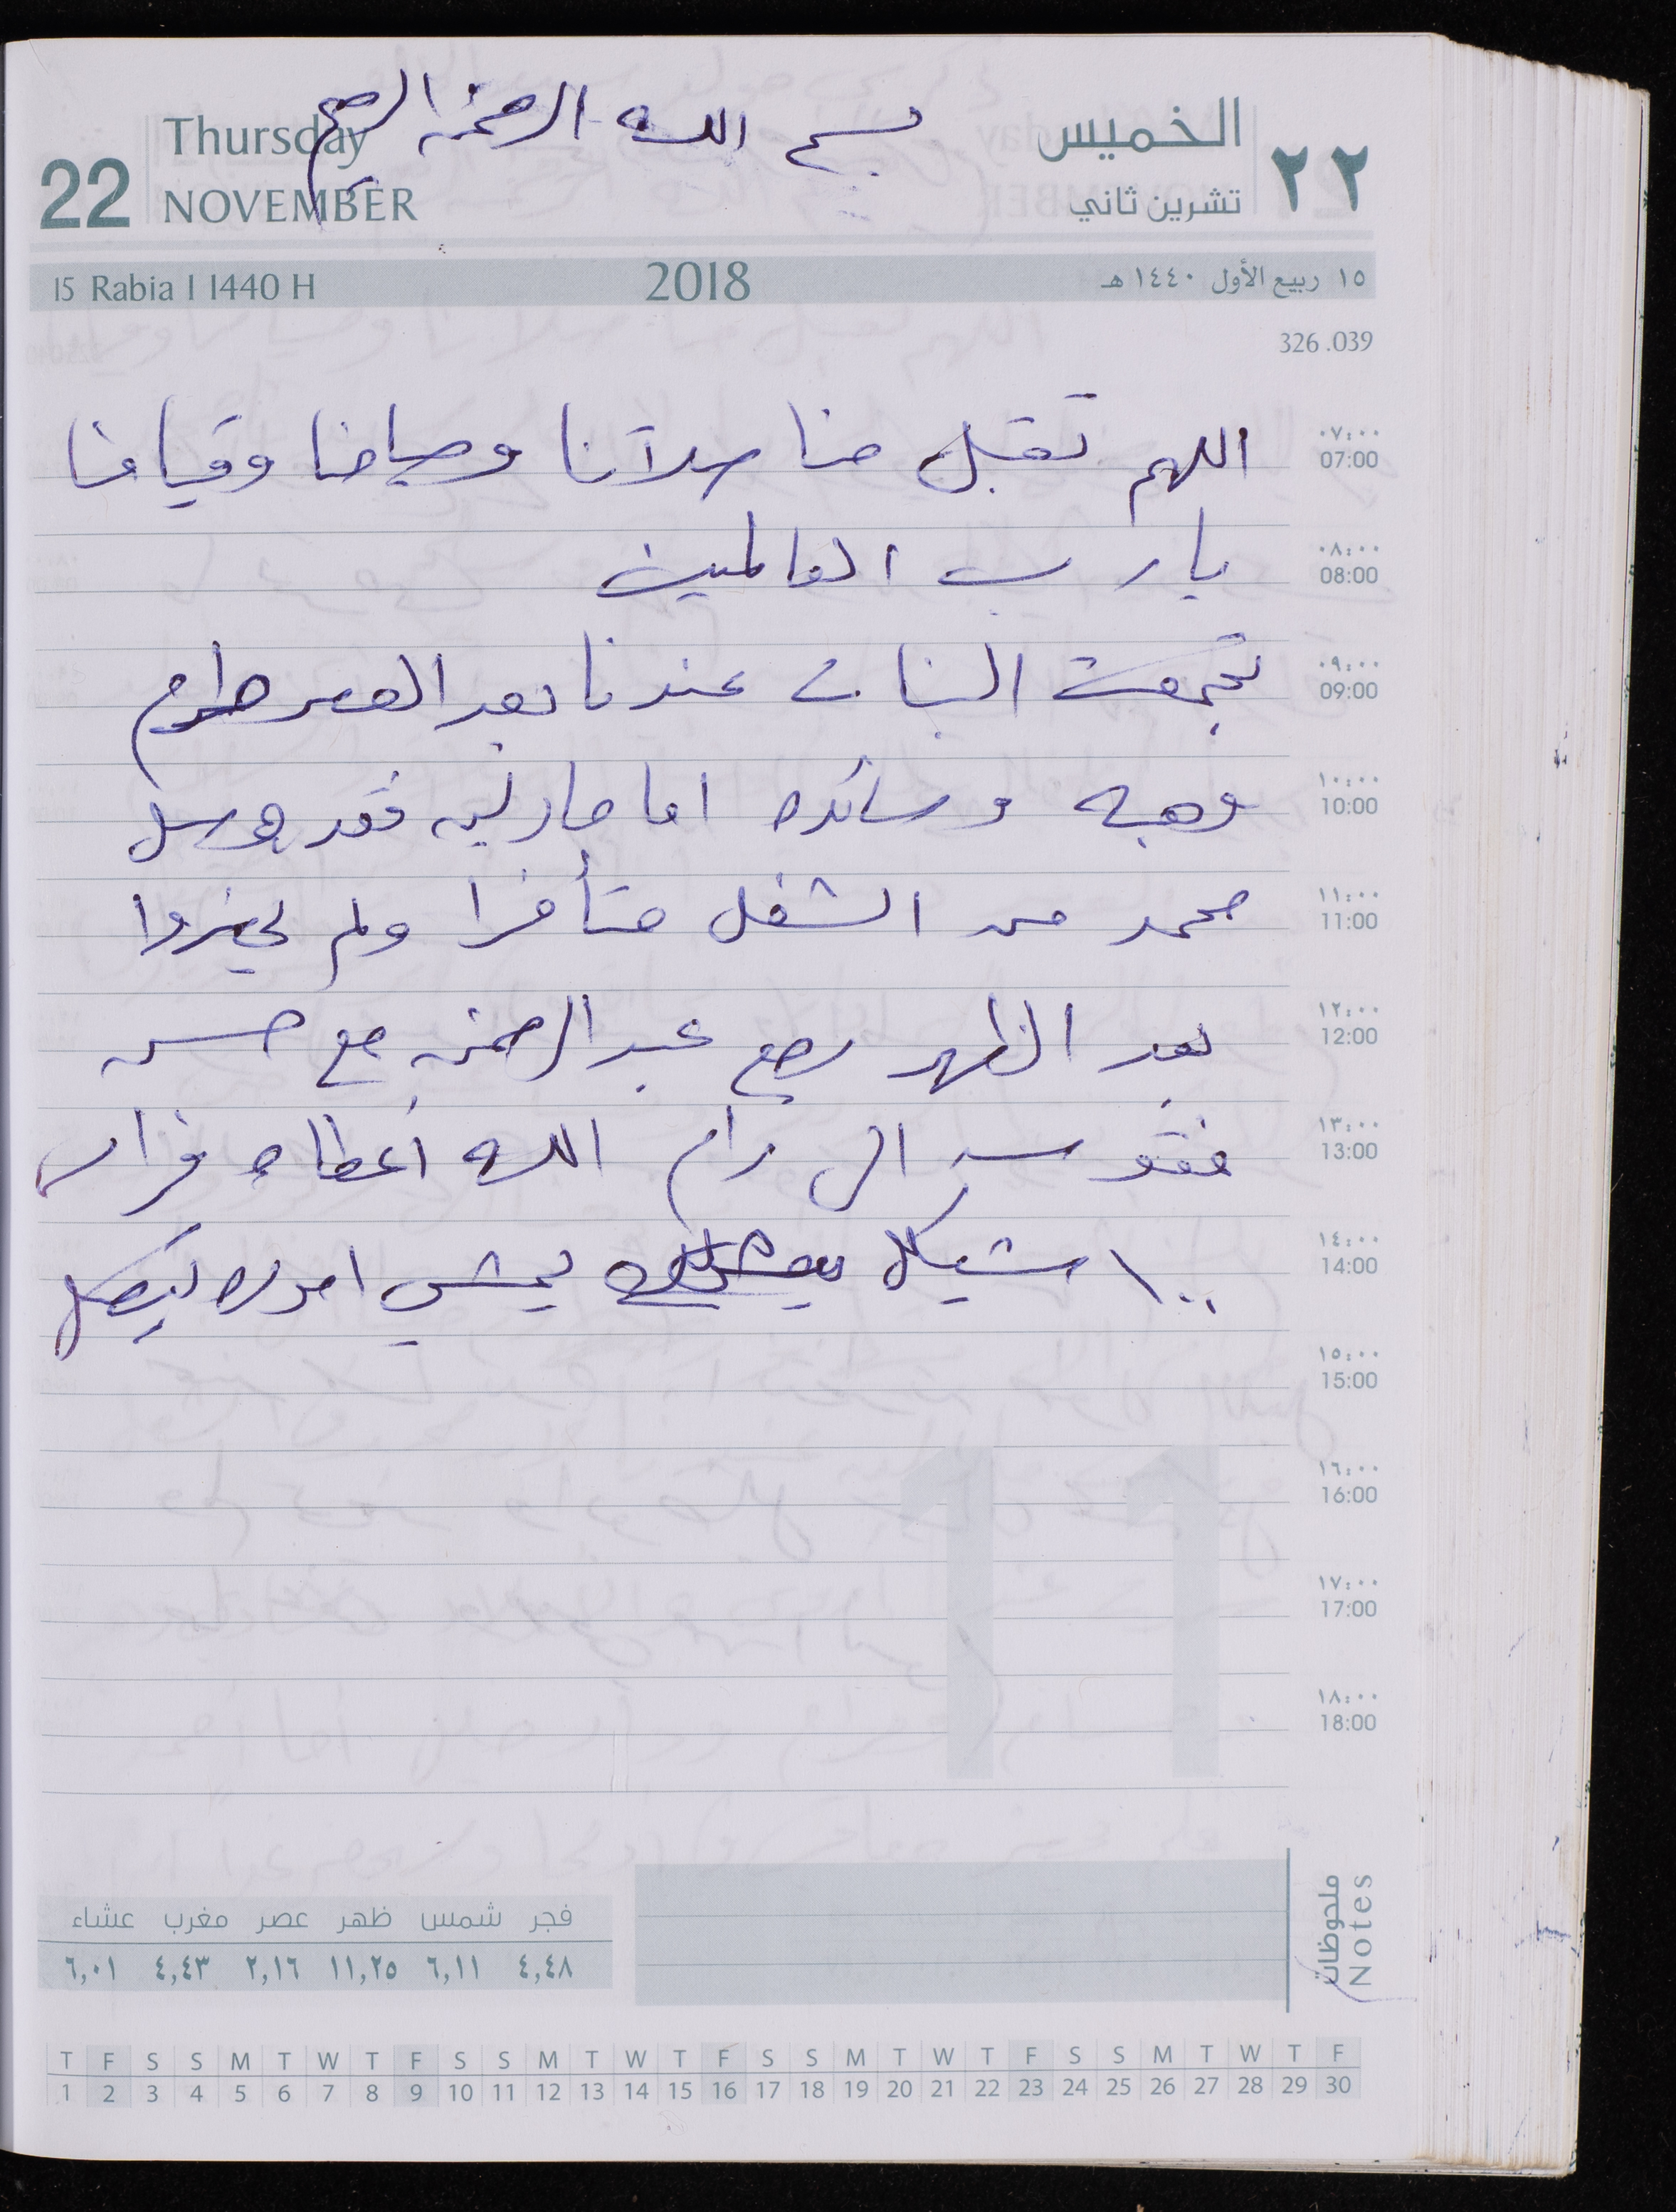 بسم الله الرحمن الرحيم
Thursday
22
NOVEMBER
الخميس
٢٢
تشرين ثاني
15 Rabia I 1440 H
2018
١٥ ربيع الأول ١٤٤٠ هـ
326.039
٠٧:٠٠
07:00
اللهم تقبل منا صلاتنا وصيامنا وقيامنا
٠٨:٠٠
08:00
يا رب العالمين
٠٩:٠٠
09:00
تجمعت البنات عندنا بعد العصر مرام
١٠:٠٠
10:00
وهبه وسائده اما مارلين فقد وصل
١١:٠٠
11:00
محمد من الشغل متأخرا ولم يحضروا
١٢:٠٠
12:00
بعد الظهر رجع عبد الرحمن مع حسن
١٣:٠٠
13:00
فقوسه الى رام الله أعطاه فراس
١٤:٠٠
14:00
١٠٠ شيكل يمشي اموره ليصل
١٥:٠٠
15:00
١٦:٠٠
16:00
١٧:٠٠
17:00
١٨:٠٠
18:00
11
ملحوظات
Notes
فجر شمس ظهر عصر مغرب عشاء
٤,٤٨ ٦,١١ ١١,٢٥ ٢,١٦ ٤,٤٣ ٦,٠١
T F S S M T W T F S S M T W T F S S M T W T F S S M T W T F
1 2 3 4 5 6 7 8 9 10 11 12 13 14 15 16 17 18 19 20 21 22 23 24 25 26 27 28 29 30